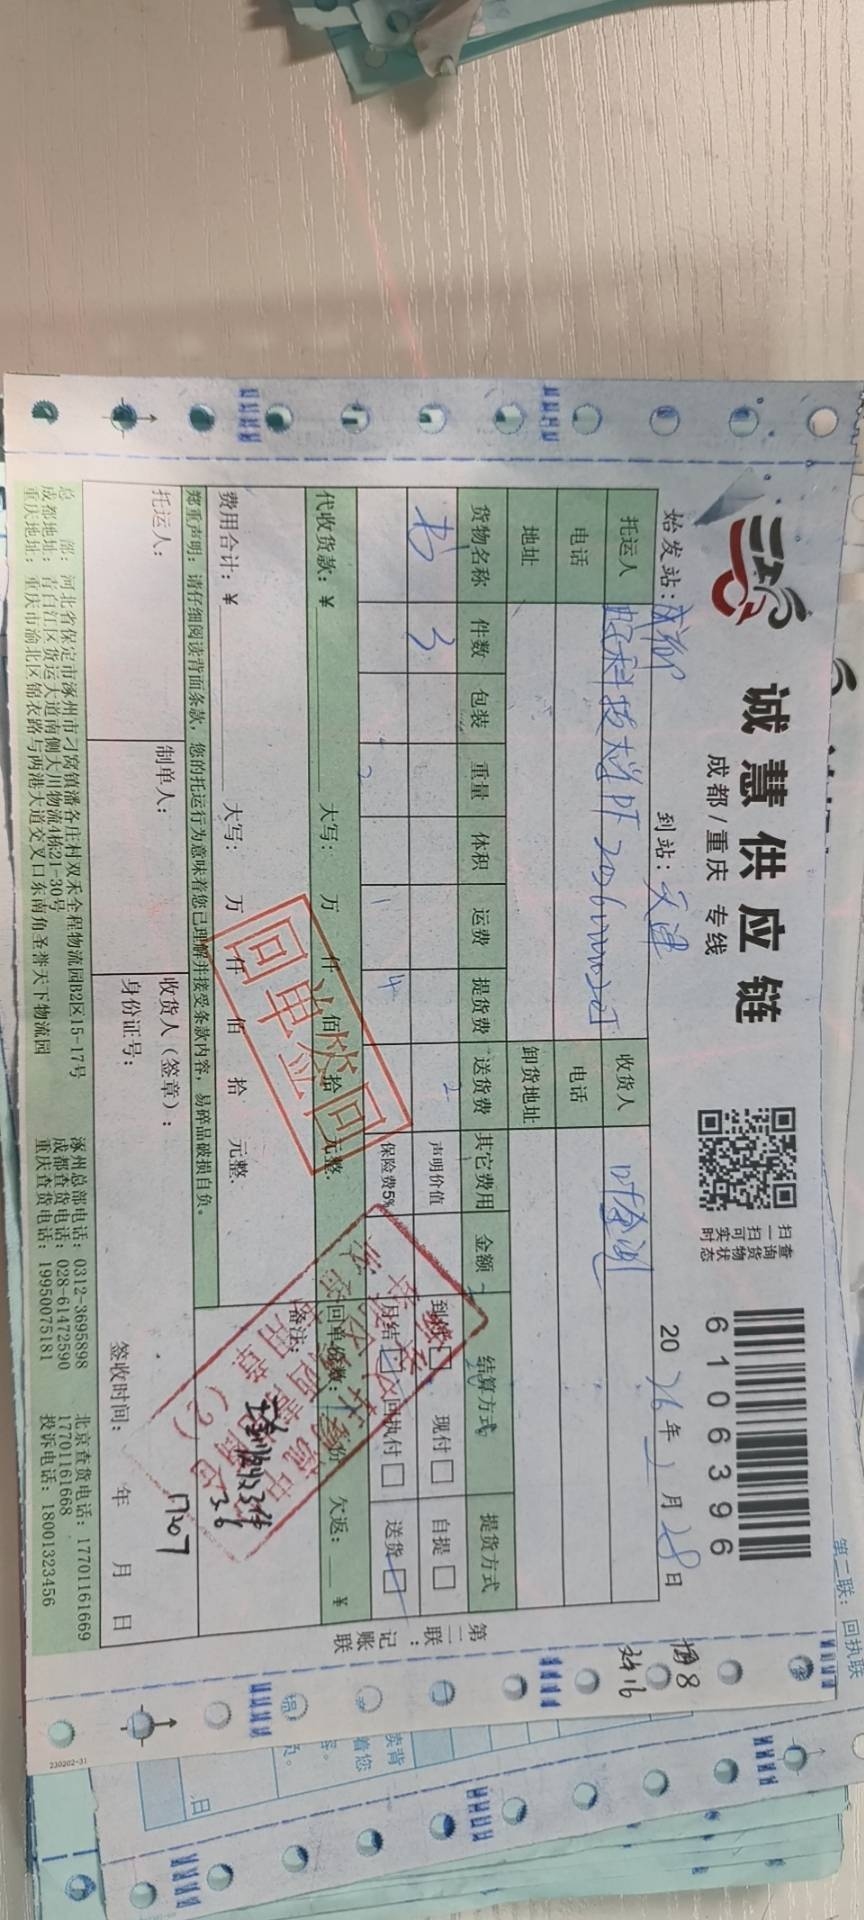 诚慧供应链
成都/重庆 专线
扫一扫可实时
查询货物状态
6106396
始发站：成都
到站：天津
20 26年 月28日
托运人
收货人
电话
电话
地址
卸货地址
货物名称 件数 包装 重量 体积 运费 提货费 送货费 其它费用 金额 结算方式 提货方式
书 3
2
声明价值
到付□ 现付□ 自提□
1 4
保险费5%
月结□ 回执付□ 送货□
代收货款：¥ 大写： 万 仟 佰 拾 元整.
回单份数： 份 欠返： ¥
费用合计：¥ 大写： 万 仟 佰 拾 元整.
备注：
郑重声明：请仔细阅读背面条款，您的托运行为意味着您已理解并接受条款内容，易碎品破损自负。
托运人：
制单人：
收货人（签章）：
身份证号：
签收时间： 年 月 日
总 部：河北省保定市涿州市刁窝镇潘各庄村双禾全程物流园B2区15-17号
涿州总部电话：0312-3695898
北京查货电话：17701161669
成都地址：青白江区货运大道南侧大川物流4栋21-30号
成都查货电话：028-61472590
17701161668
重庆地址：重庆市渝北区锦衣路与两港大道交叉口东南角圣誉天下物流园
重庆查货电话：19950075181
投诉电话：18001323456
第二联：记账联
回单签回
第二联：回执联
230202-31